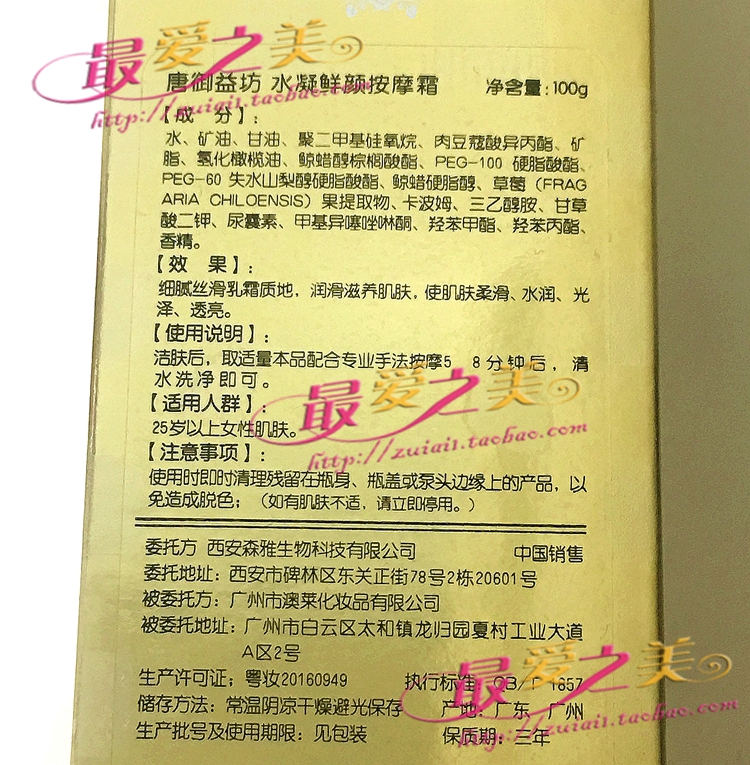 最爱之美
http://zuiai1.taobao.com
唐御益坊 水凝鲜颜按摩霜 净含量:100g
【成 分】:
水、矿油、甘油、聚二甲基硅氧烷、肉豆蔻酸异丙酯、矿
脂、氢化橄榄油、鲸蜡醇棕榈酸酯、PEG-100 硬脂酸酯、
PEG-60 失水山梨醇硬脂酸酯、鲸蜡硬脂醇、草莓（FRAG
ARIA CHILOENSIS）果提取物、卡波姆、三乙醇胺、甘草
酸二钾、尿囊素、甲基异噻唑啉酮、羟苯甲酯、羟苯丙酯、
香精。
【效 果】:
细腻丝滑乳霜质地，润滑滋养肌肤，使肌肤柔滑、水润、光
泽、透亮。
【使用说明】:
洁肤后，取适量本品配合专业手法按摩5 8分钟后，清
水洗净即可。
最爱之美
http://zuiai1.taobao.com
【适用人群】:
25岁以上女性肌肤。
【注意事项】:
使用时即时清理残留在瓶身、瓶盖或泵头边缘上的产品，以
免造成脱色；（如有肌肤不适，请立即停用。）
委托方 西安森雅生物科技有限公司 中国销售
委托地址: 西安市碑林区东关正街78号2栋20601号
被委托方: 广州市澳莱化妆品有限公司
被委托地址: 广州市白云区太和镇龙归园夏村工业大道
A区2号
生产许可证: 粤妆20160949 执行标准: QB/T 1657
储存方法: 常温阴凉干燥避光保存 产地: 广东 广州
生产批号及使用期限: 见包装 保质期: 三年
最爱之美
http://zuiai1.taobao.com